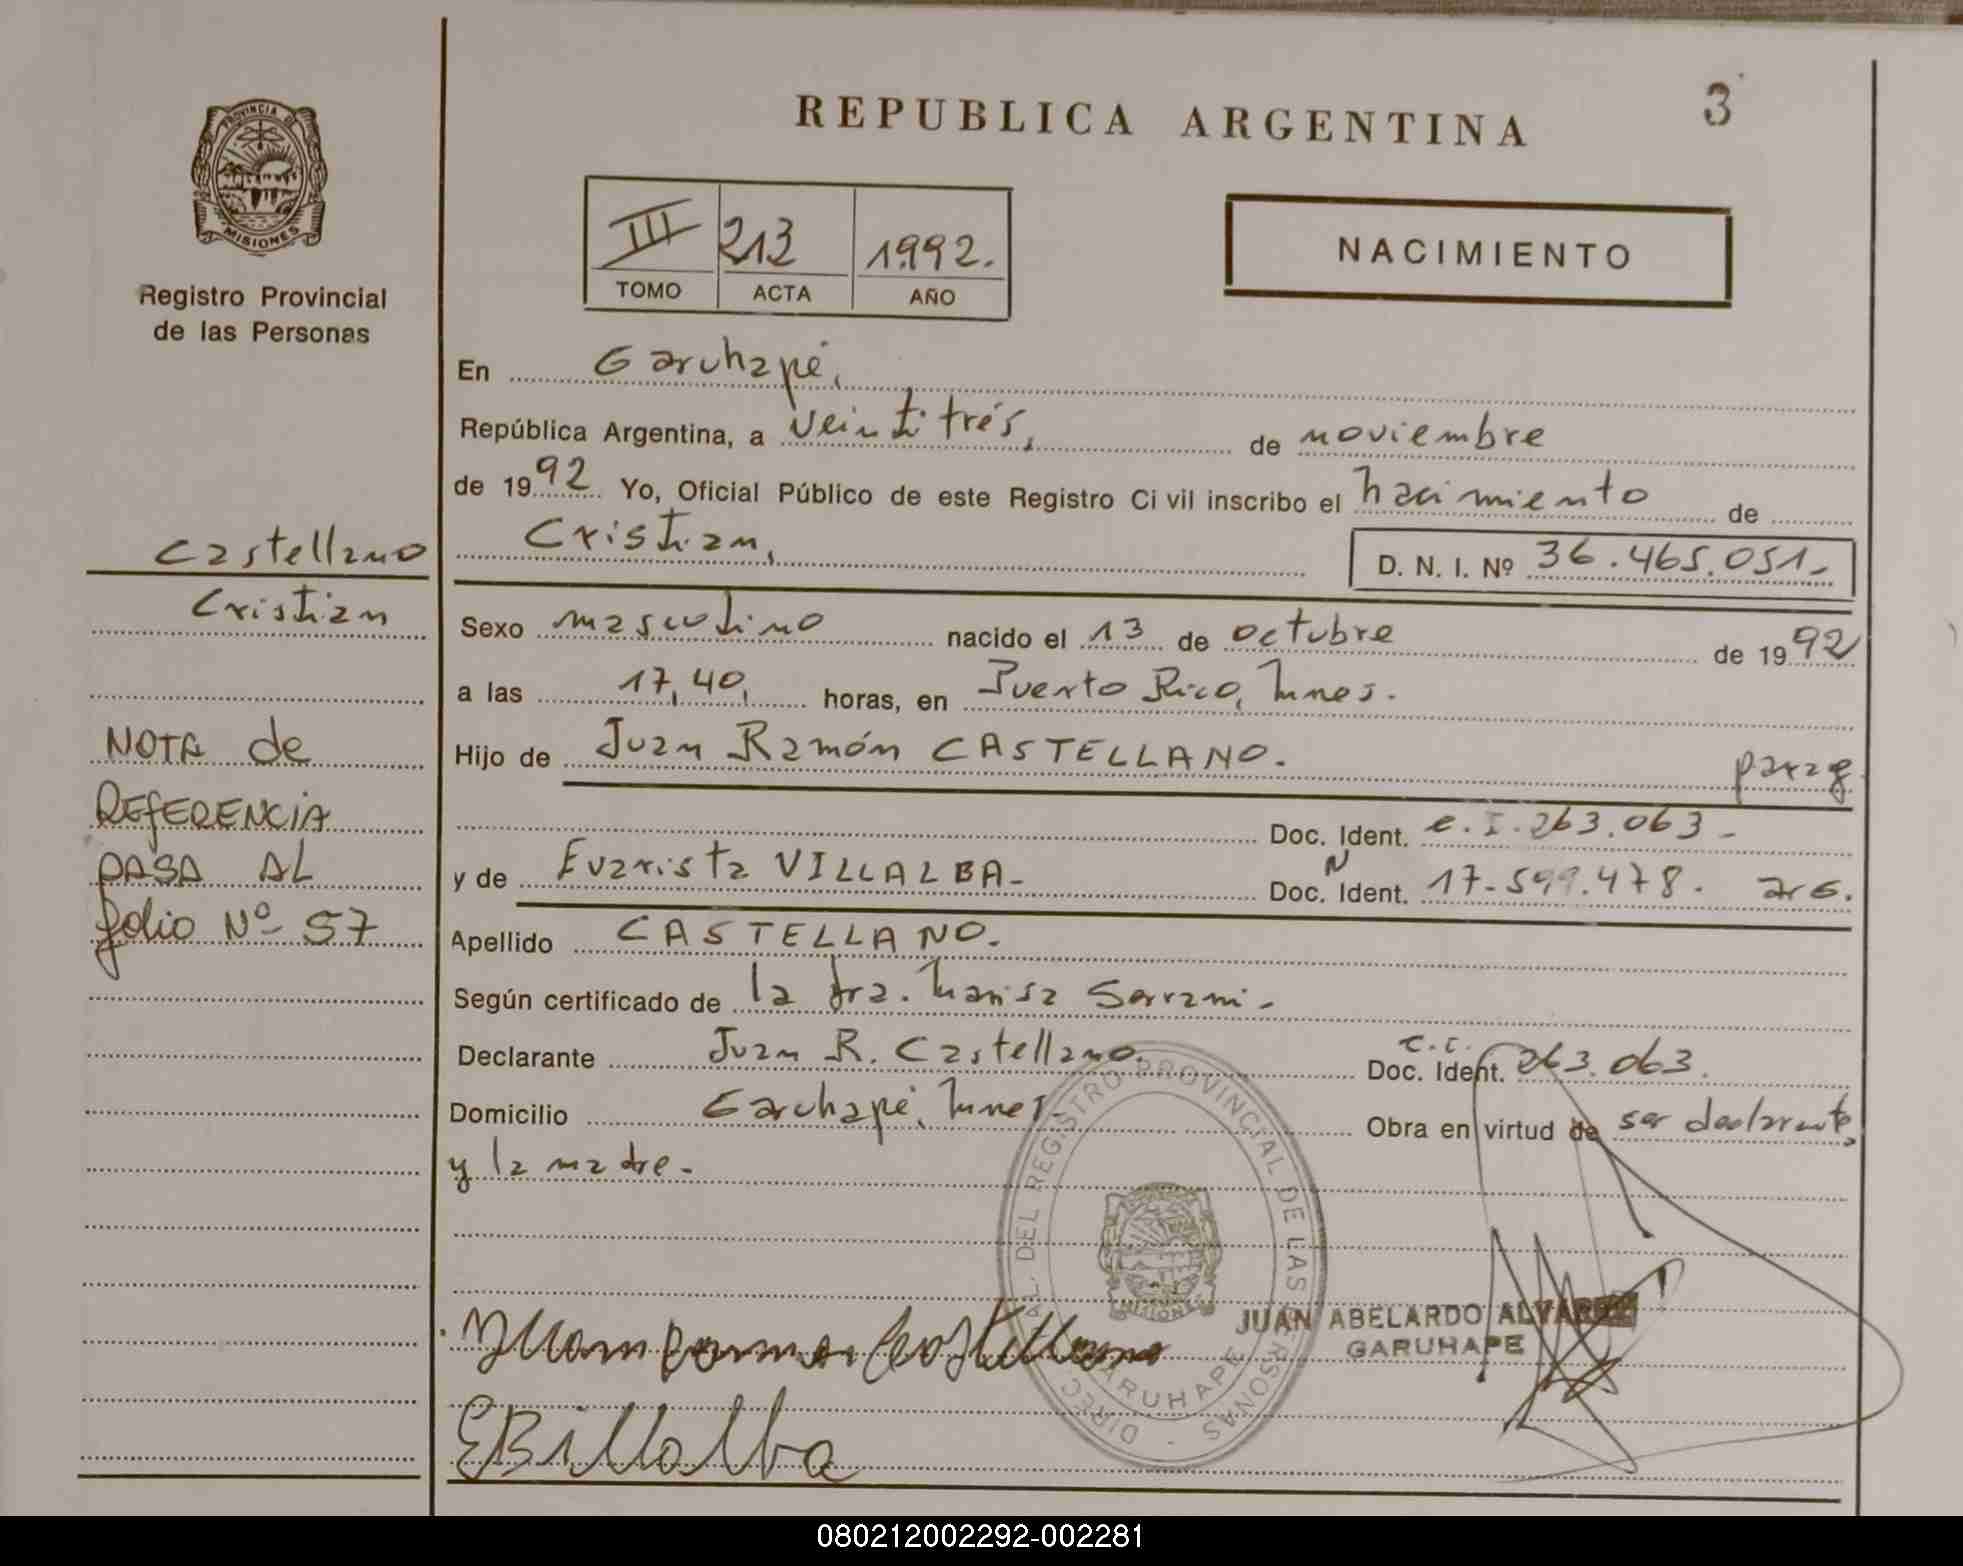 REPUBLICA ARGENTINA
3
PROVINCIA DE
MISIONES
Registro Provincial
de las Personas
III 213 1992.
TOMO ACTA AÑO
NACIMIENTO
En Garuhapé,
República Argentina, a veintitrés, de noviembre
de 1992 Yo, Oficial Público de este Registro Ci vil inscribo el nacimiento de
Cristian,
D. N. I. Nº 36.465.051.-
Castellano
Cristian
NOTA de
REFERENCIA
PASA AL
folio Nº 57
Sexo masculino nacido el 13 de octubre de 1992
a las 17,40, horas, en Puerto Rico, Mnes.
Hijo de Juan Ramón CASTELLANO. parag.
Doc. Ident. c.I.263.063-
y de Evarista VILLALBA- Doc. Ident. 17.599.478. arG.
Apellido CASTELLANO.
Según certificado de la dra. Marisa Serrani-
Declarante Juan R. Castellano. Doc. Ident. c.i. 263.063.
Domicilio Garuhapé, Mnes- Obra en virtud de ser declarante,
y la madre-
DIREC. GRAL. DEL REGISTRO PROVINCIAL DE LAS PERSONAS
MISIONES
GARUHAPE
JUAN ABELARDO ALVAREZ
GARUHAPE
EBillalba
080212002292-002281